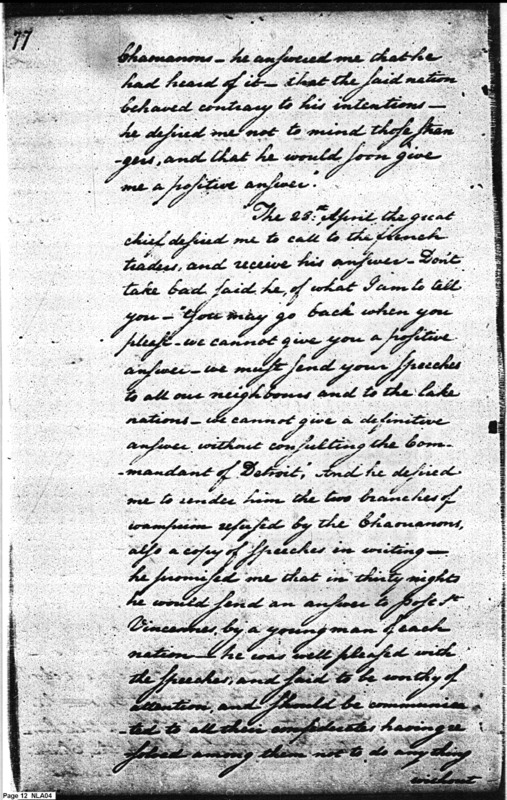 77
Chaouanons – he answered me that he
had heard of it – that the said nation
behaved contrary to his intentions –
he desired me not to mind those stran
-gers, and that he would soon give
me a positive answer".
The 28th. April the great
chief desired me to call to the french
traders, and receive his answer – Don't
take bad said he, of what I am to tell
you – "You may go back when you
please – we cannot give you a positive
answer – we must send your speeches
to all our neighbours and to the lake
nations – we cannot give a definitive
answer without consulting the Com-
-mandant of Detroit", And he desired
me to render him the two branches of
wampum refused by the Chaouanons,
also a copy of speeches in writing –
he promised me that in thirty nights
he would send an answer to Post St
Vincennes, by a young man of each
nation – he was well pleased with
the speeches, and said to be worthy of
attention, and should be communica
-ted to all their confederates having re
solved among them not to do anything
without
Page 12 NLA04